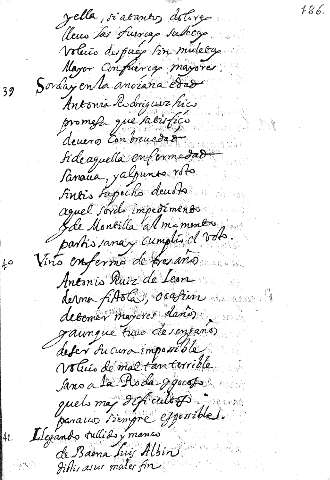 186.
y ella, si atantos dolores
deuo las fuerças
voluio despues sin muletas
Mayor con fuerças mayores.
39 Sorda y en la anciana edad
Antonia Rodriguez hiço
promesa que satisfiço
de veros con breuedad
si de aquella enfermedad
sanaua, y al punto roto
sintio su pecho deuoto
aquel sordo impedimento
y de Montilla al momento
partio sana y cumplio el voto.
40 Vino enfermo de tres años
Antonio Ruiz de Leon
de vna fistola, ocasion
de temer mayores daños
y aunque tuuo desengaños
de ser su cura impossible
voluio de mal tan terrible
sano a La Roda
que lo mas dificultoso
para vos siempre es possible.
41 Llegando tullido y manco
de Baena Luis Albin
distis a sus males fin